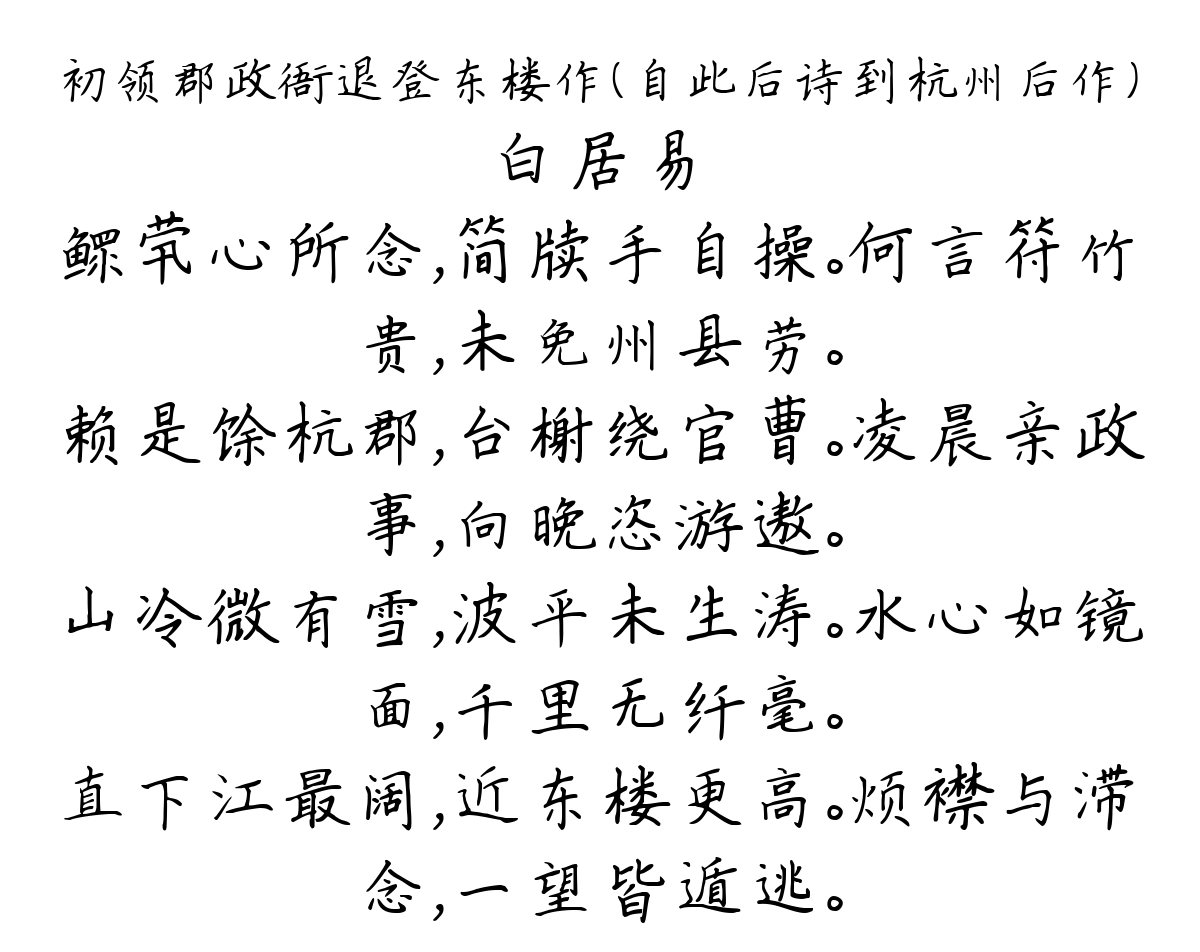 初领郡政衙退登东楼作(自此后诗到杭州后作)
白居易
鳏茕心所念,简牍手自操。何言符竹
贵,未免州县劳。
赖是馀杭郡,台榭绕官曹。凌晨亲政
事,向晚恣游遨。
山冷微有雪,波平未生涛。水心如镜
面,千里无纤毫。
直下江最阔,近东楼更高。烦襟与滞
念,一望皆遁逃。